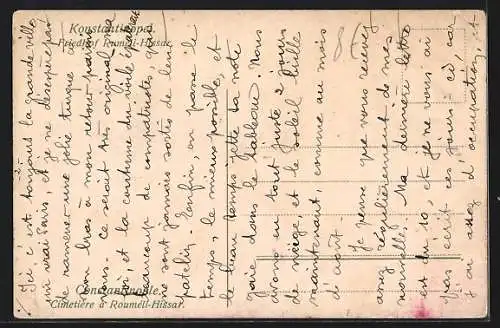 Konstantinopel.
Friedhof Rumeli-Hissar.
Ici c'est toujours la grande ville
un vrai Paris, et je ne désespère pas
de ramener une jolie turque à
mon bras à mon retour parmi
vous. Ce serait très original, ma
foi, et la coutume du voile
beaucoup de compatriotes qui
ne sont jamais sortis de leur
patelin. Enfin, on passe le
temps, le mieux possible, et
le beau temps jette sa note
gaie dans le tableau. Nous
avons eu tout juste 2 jours
de neige, et le soleil brille
maintenant, comme au mois
d'août.
Je pense que vous recevez
assez régulièrement de mes
nouvelles. Ma dernière lettre
est du 10, et je ne vous ai
pas écrit ces jours-ci, car
j'ai assez d'occupation, et
Constantinople.
Cimetière à Rouméli-Hissar.